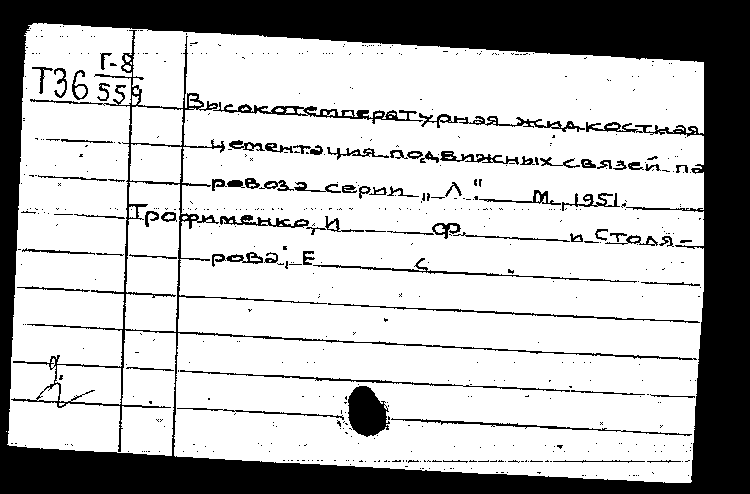 Т36 Г-8
559
Высокотемпературная жидкостная
цементация подвижных связей па
ровоза серии „Л". М., 1951.
Трофименко, И ф. и Столя-
рова, Е С.